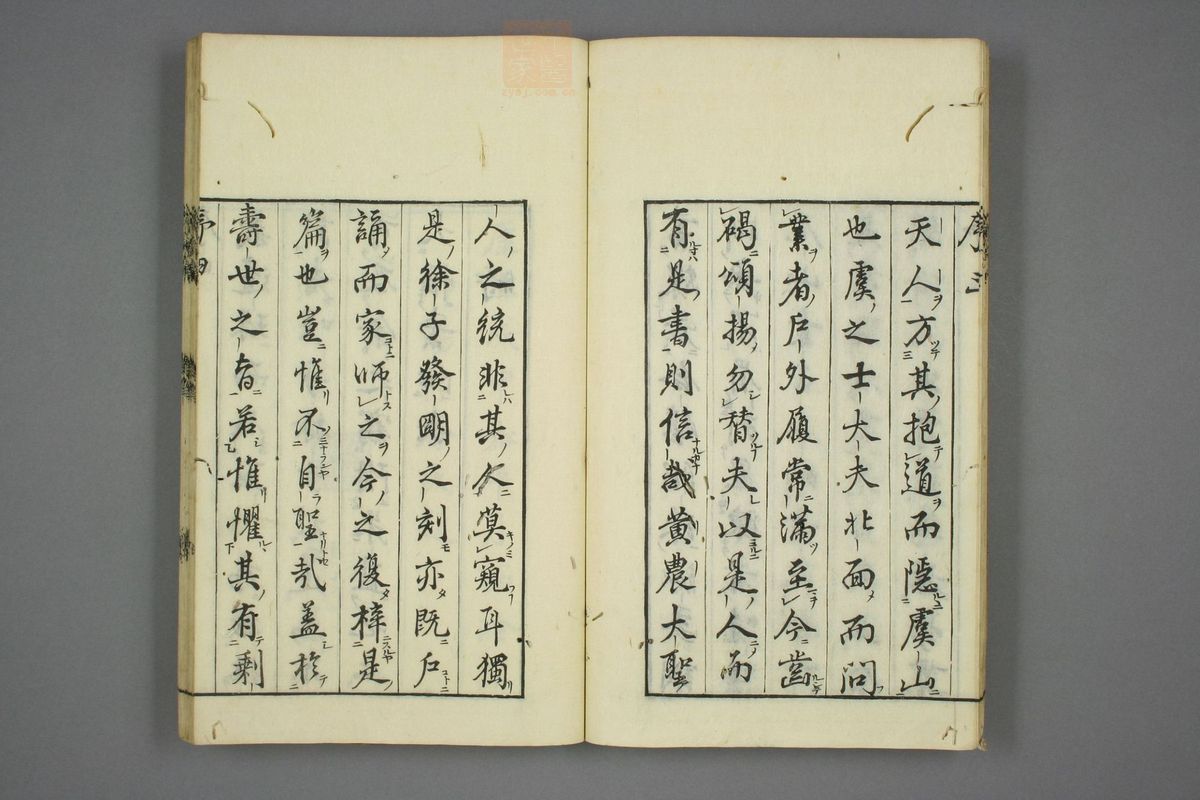 序三
天人方其抱道而隱虞山
也虞之士大夫北面而問
業者戶外履常滿至今齒
褐頌揚勿替夫以是人而
有是書則信哉黃農大聖
人之統非其人莫窺耳獨
是徐子發明之刻亦既戶
誦而家師之今之復梓是
篇也豈惟不自聖哉蓋於
壽世之旨若惟懼其有剩
序四